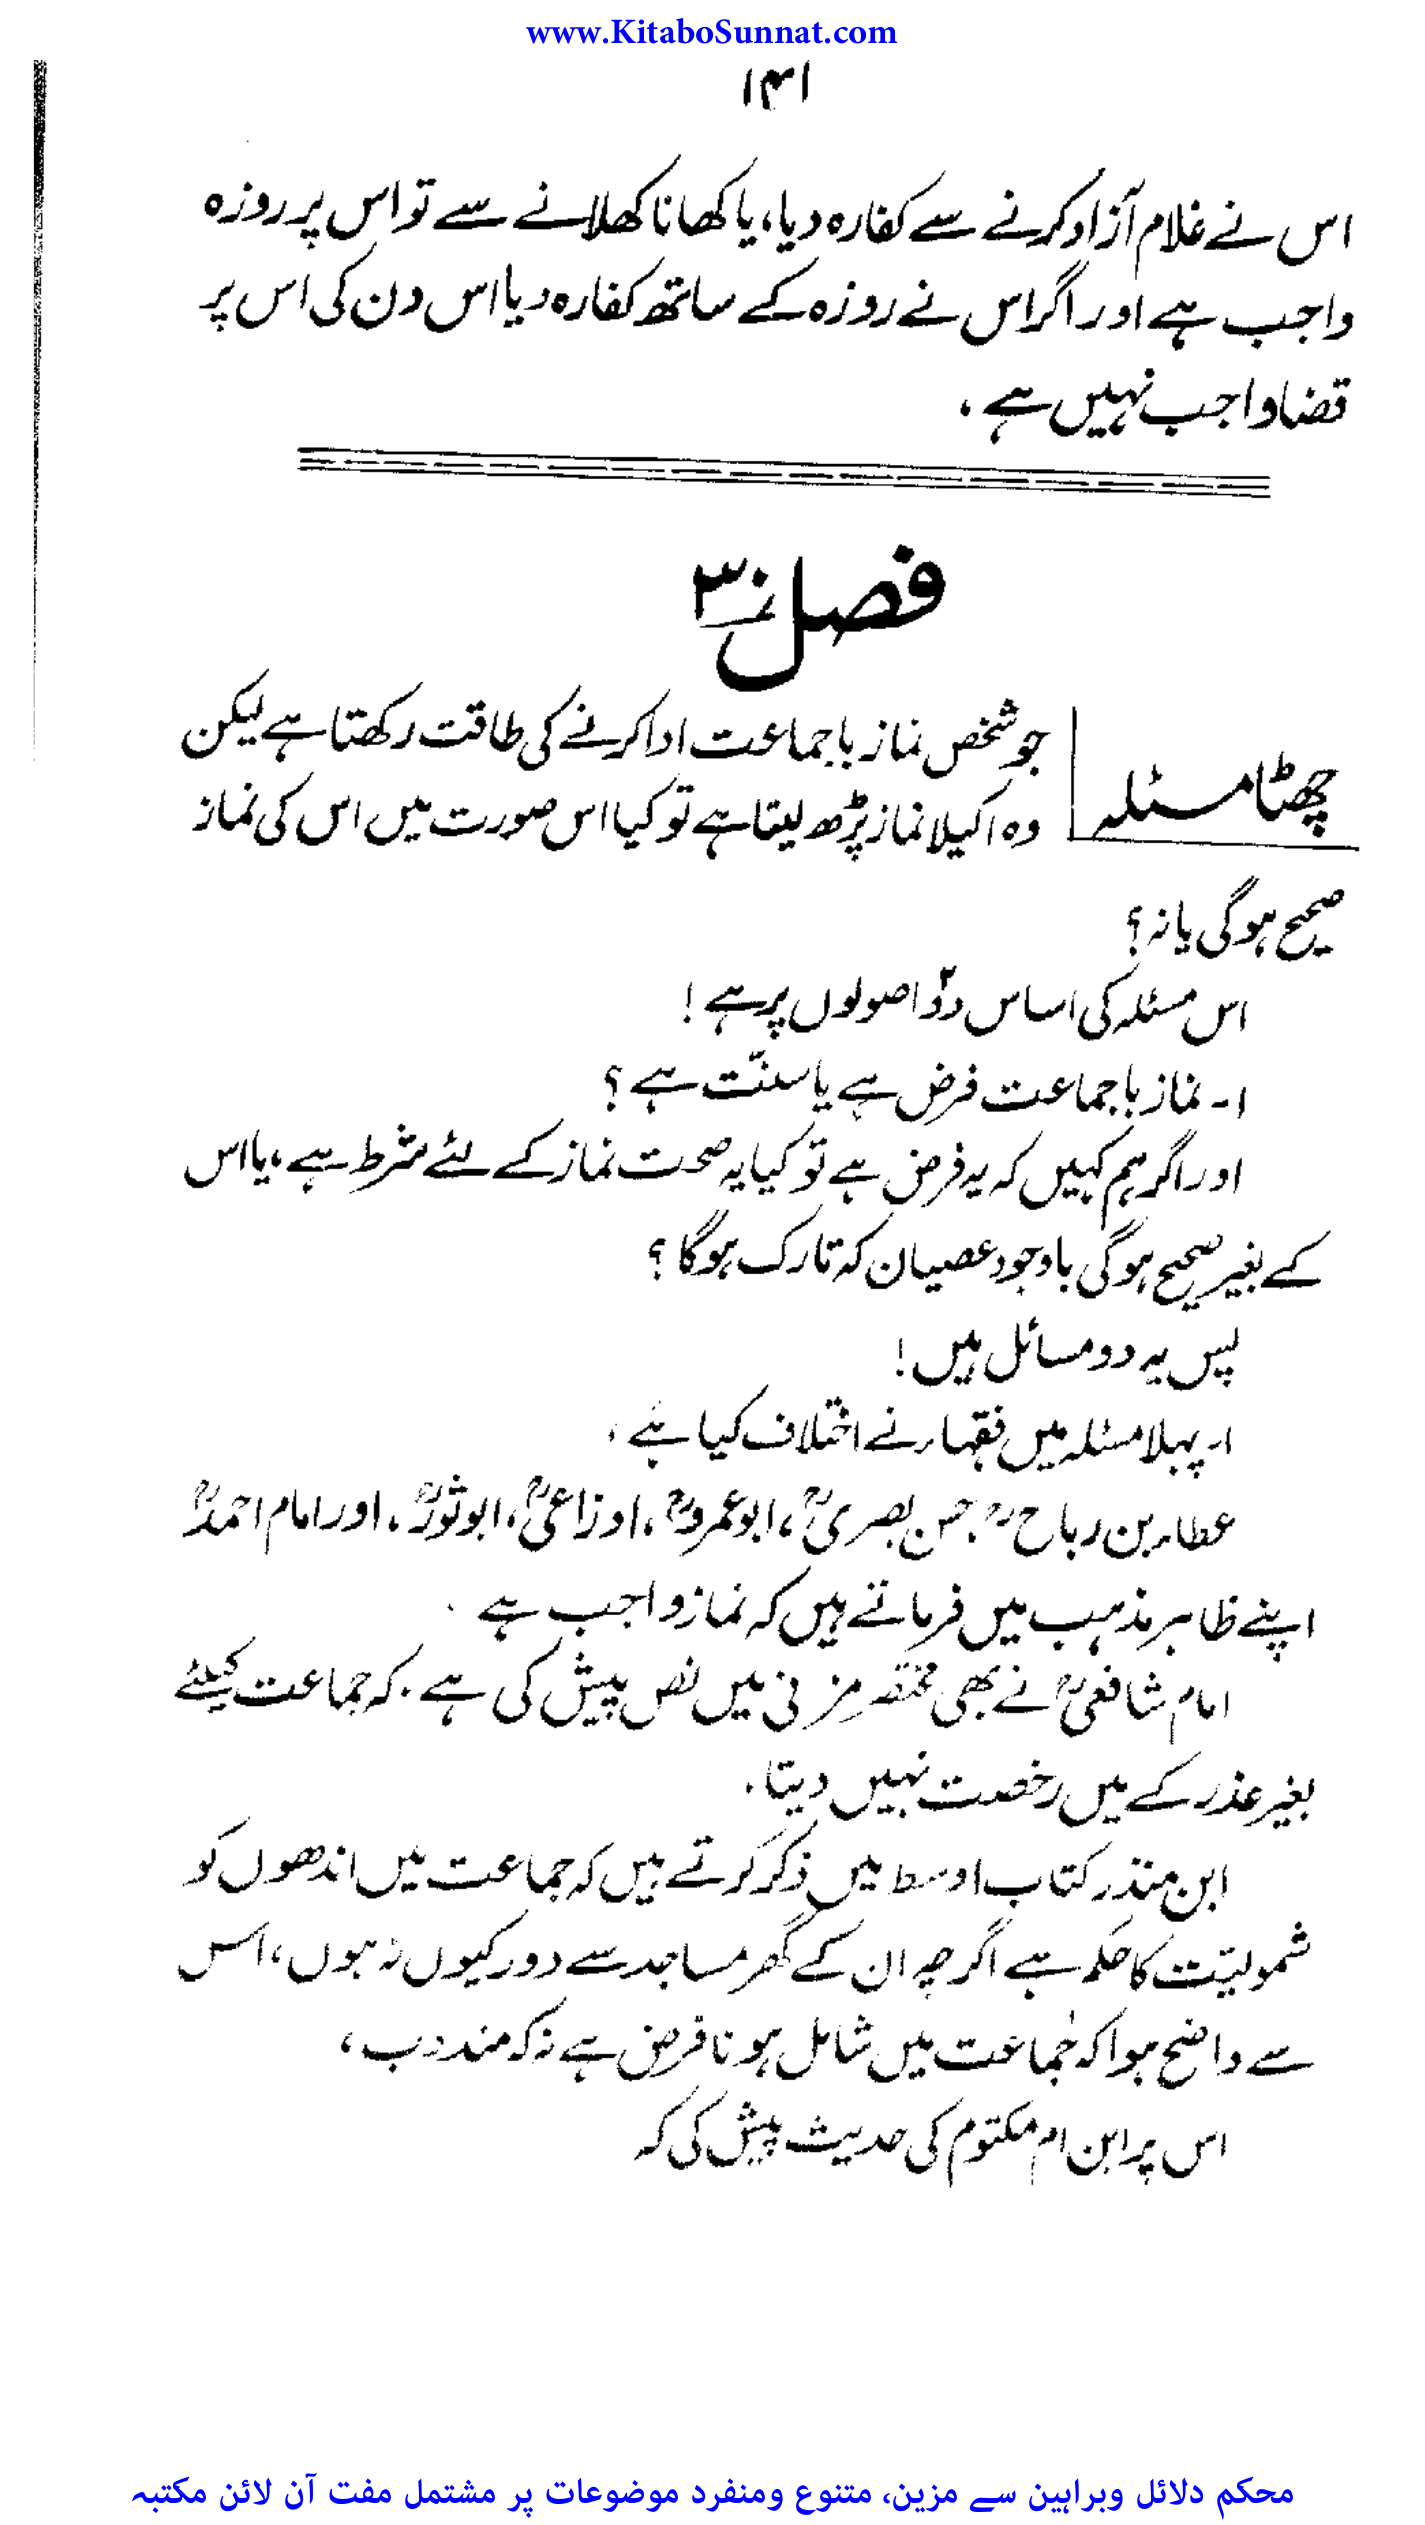 www.KitaboSunnat.com
۱۴۱
اس نے غلام آزاد کرنے سے کفارہ دیا، یا کھانا کھلانے سے تو اس پر روزہ
واجب ہے اور اگر اس نے روزہ کے ساتھ کفارہ دیا اس دن کی اس پر
قضا واجب نہیں ہے ،
فصل نمبر ۳
چھٹا مسئلہ
جو شخص نماز باجماعت ادا کرنے کی طاقت رکھتا ہے لیکن
وہ اکیلا نماز پڑھ لیتا ہے تو کیا اس صورت میں اس کی نماز
صحیح ہوگی یا نہ ؟
اس مسئلہ کی اساس دو۲ اصولوں پر ہے !
۱۔ نماز باجماعت فرض ہے یا سنّت ہے ؟
اور اگر ہم کہیں کہ یہ فرض ہے تو کیا یہ صحت نماز کے لئے شرط ہے ، یا اس
کے بغیر صحیح ہوگی باوجود عصیان کہ تارک ہوگا ؟
پس یہ دو مسائل ہیں !
۱۔ پہلا مسئلہ میں فقہاء نے اختلاف کیا ہے ،
عطاء بن رباحؒ حسن بصریؒ ، ابو عمروؒ ، اوزاعیؒ ، ابو ثورؒ ، اور امام احمدؒ
اپنے ظاہر مذہب میں فرماتے ہیں کہ نماز واجب ہے ۔
امام شافعیؒ نے بھی مختصر مزنی میں نص پیش کی ہے ۔ کہ جماعت کیلئے
بغیر عذر کے میں رخصت نہیں دیتا ۔
ابن منذر کتاب اوسط میں ذکر کرتے ہیں کہ جماعت میں اندھوں کو
شمولیّت کا حکم ہے اگرچہ ان کے گھر مساجد سے دور کیوں نہ ہوں ، اس
سے واضح ہوا کہ جماعت میں شامل ہونا فرض ہے نہ کہ مندوب ،
اس پر ابن ام مکتوم کی حدیث پیش کی کہ
محکم دلائل وبراہین سے مزین، متنوع ومنفرد موضوعات پر مشتمل مفت آن لائن مکتبہ